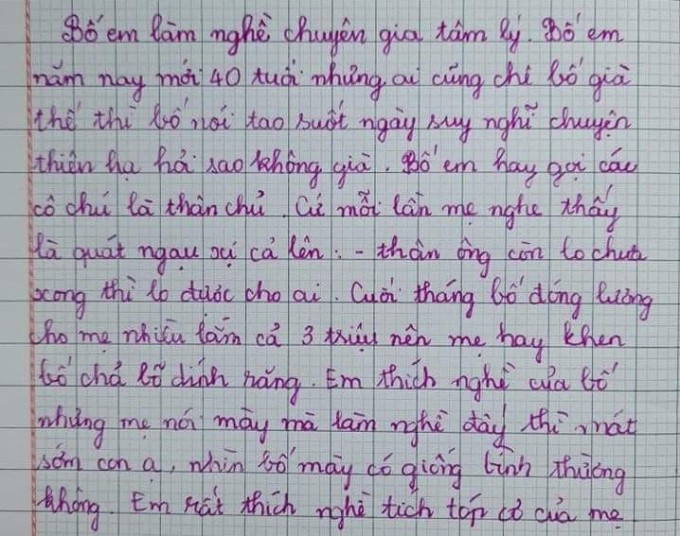 Bố em làm nghề chuyên gia tâm lý. Bố em
năm nay mới 40 tuổi nhưng ai cũng chê bố già
thế thì bố nói tao suốt ngày suy nghĩ chuyện
thiên hạ hỏi sao không già. Bố em hay gọi các
cô chú là thân chủ. Cứ mỗi lần mẹ nghe thấy
là quát ngau xị cả lên: - thân ông còn lo chưa
xong thì lo được cho ai. Cuối tháng bố đóng lương
cho mẹ nhiều lắm cả 3 triệu nên mẹ hay khen
bố chả bõ dính răng. Em thích nghề của bố
nhưng mẹ nói mày mà làm nghề đấy thì mát
sớm con ạ, nhìn bố mày có giống bình thường
không. Em rất thích nghề tích tóp cơ của mẹ